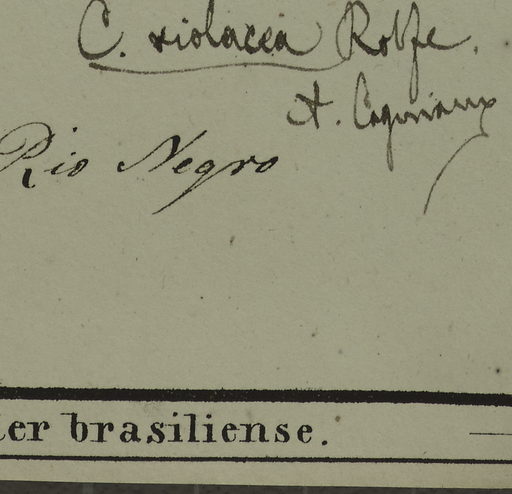 C. violacea Rolfe.
A. Cogniaux
Rio Negro
ter brasiliense.